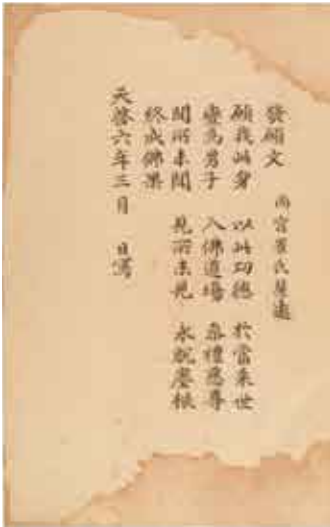 發願文 尚宮崔氏
願我此身 以此功德 於當來世
變為男子 入佛道場 禮慈尊
聞所未聞 見所未見 永脫塵根
終成佛果
天啓六年三月 日寫